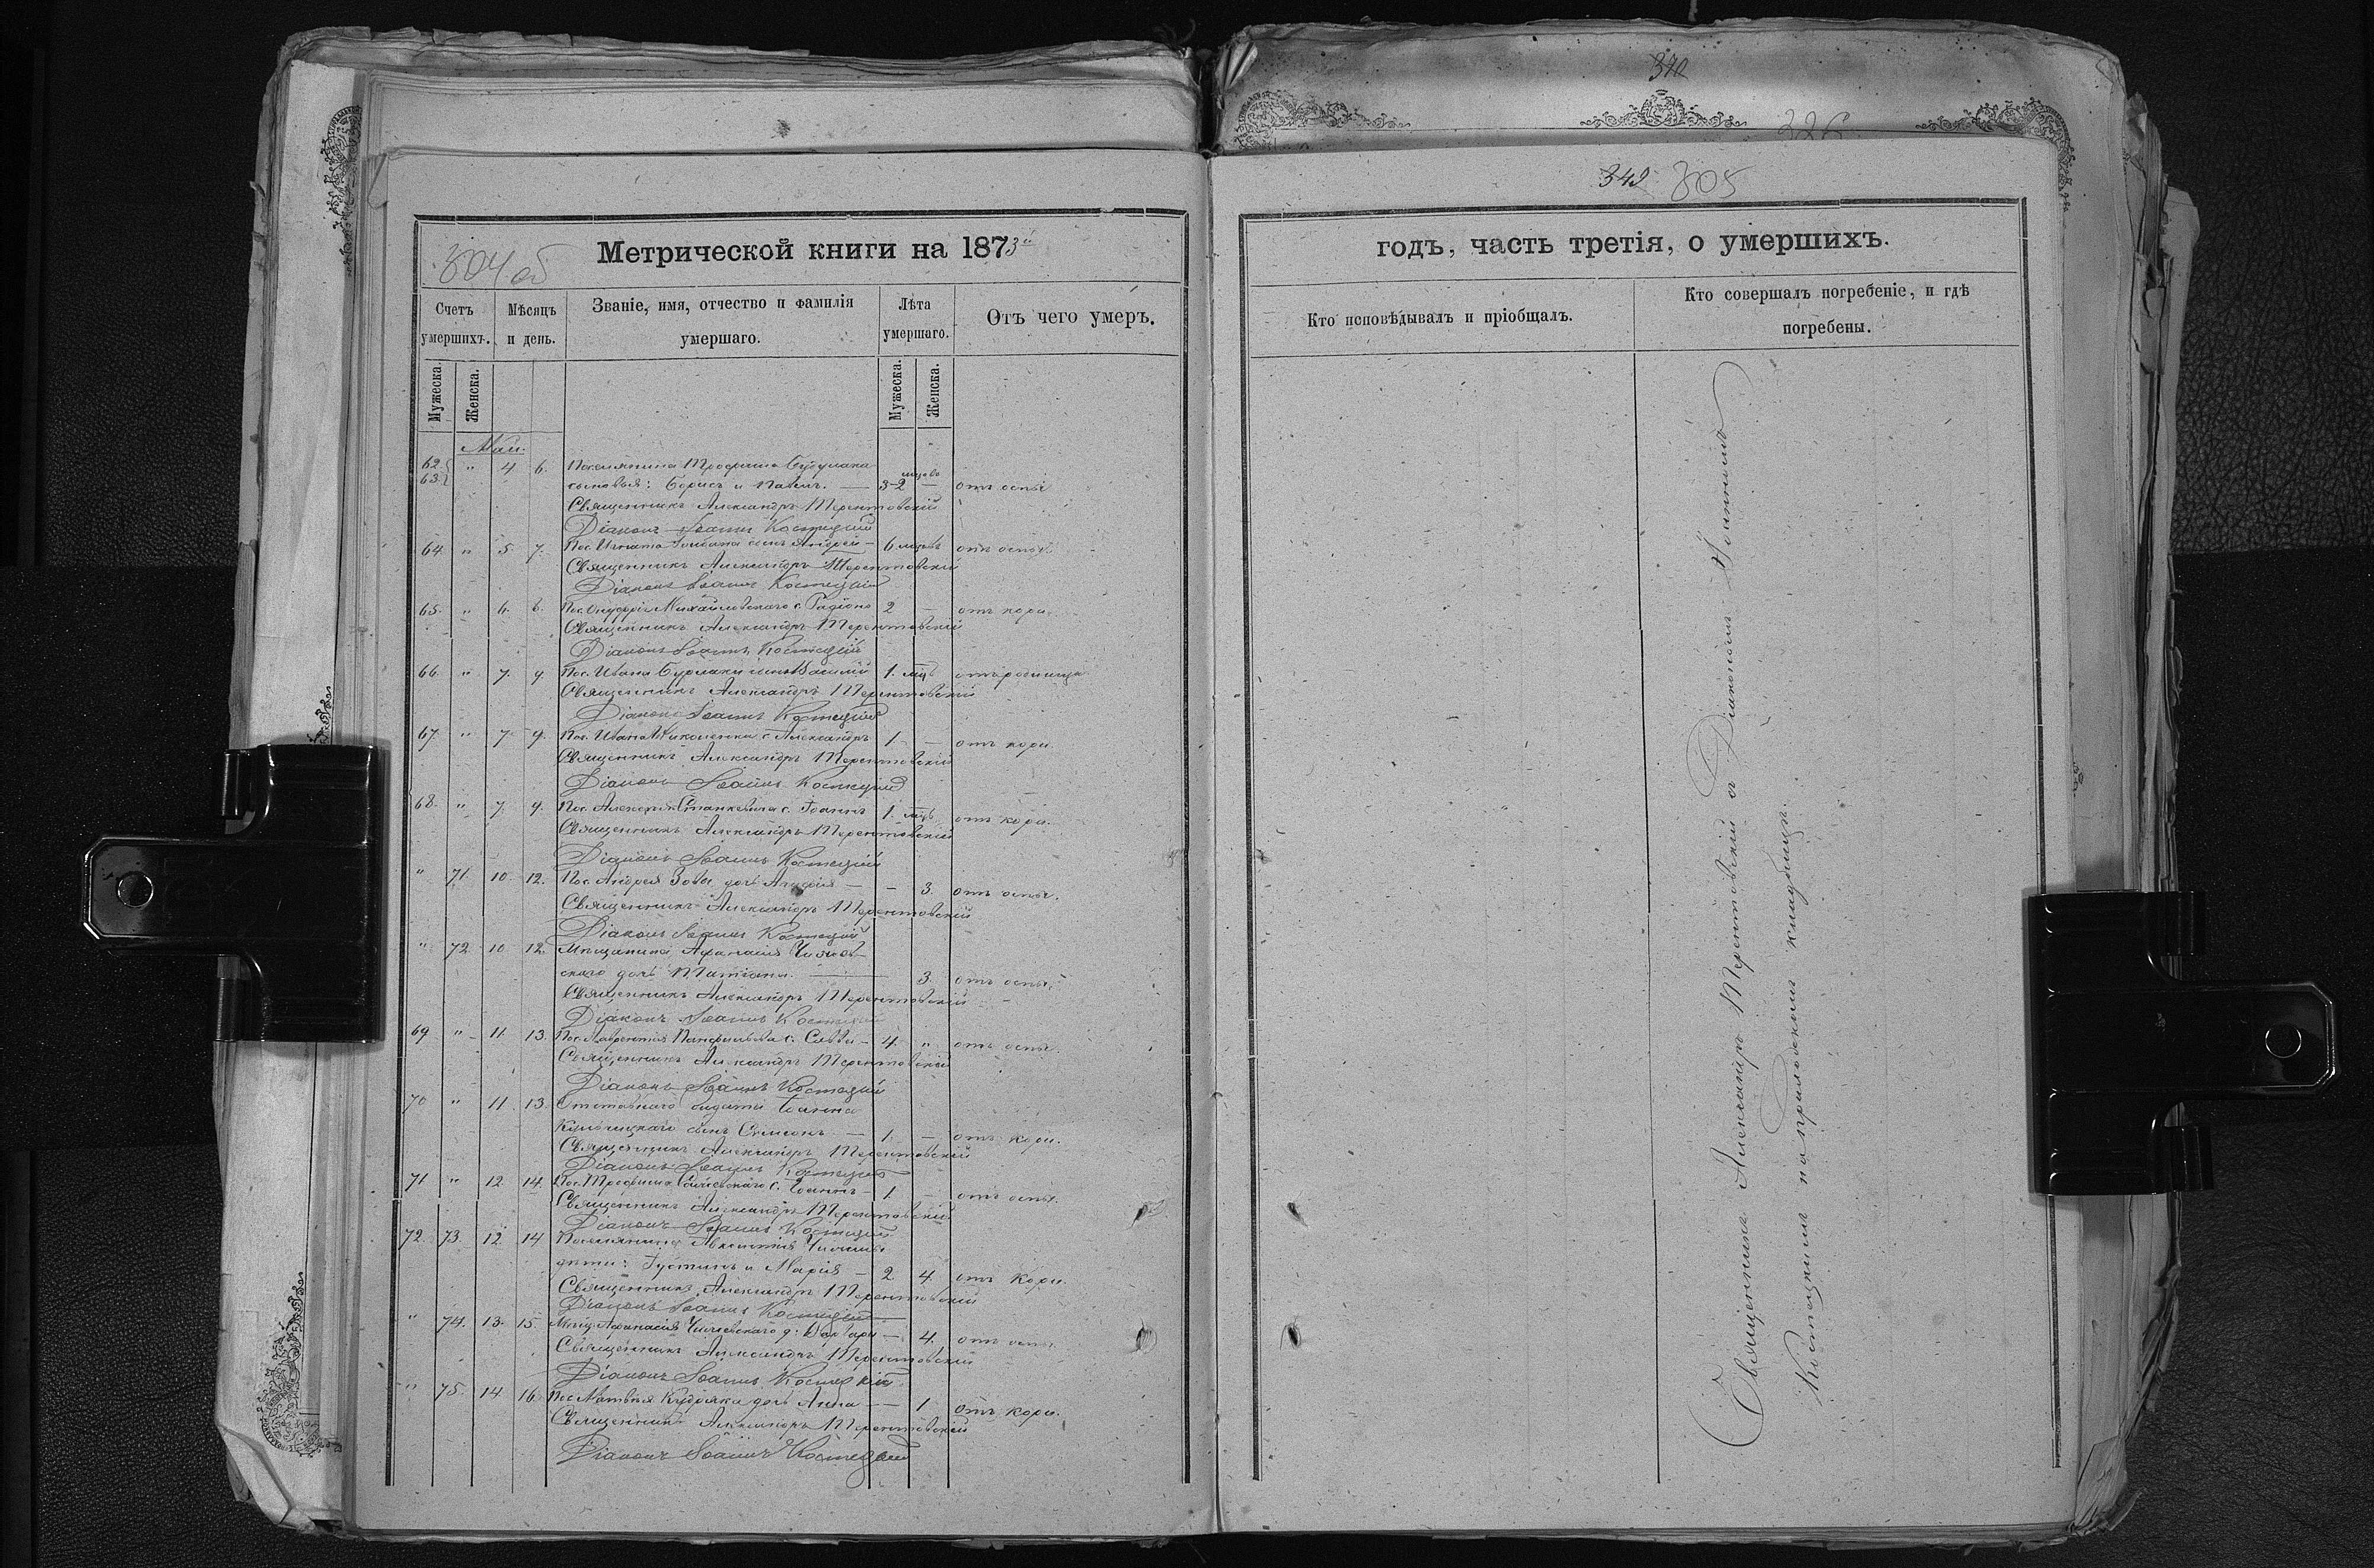 340
336
342 305
304 об
Метрической книги на 1873й
годъ, часть третія, о умершихъ.
Счетъ умершихъ.
Мѣсяцъ и день.
Званіе, имя, отчество и фамилія умершаго.
Лѣта умершаго.
Отъ чего умеръ.
Кто исповѣдывалъ и пріобщалъ.
Кто совершалъ погребеніе, и гдѣ погребены.
Мужеска. Женска. Мужеска. Женска.
Май.
62. 63. " 4 6. Поселянина Трофима
сыновья: Борисъ и Павелъ. — 3-2 мцовъ — отъ оспы
Священникъ Александръ Терентовскій
Діаконъ Іоаннъ Костецкій
64. " 5. 7. Пос. Игната сынъ Андрей — 6 мцовъ отъ оспы.
Священникъ Александръ Терентовскій
Діаконъ Іоаннъ Костецкій
65. " 6. 8. Пос. Онуфрія Михайловскаго с. Радіонъ 2 — отъ кори.
Священникъ Александръ Терентовскій
Діаконъ Іоаннъ Костецкій
66. " 7. 9. Пос. Ивана Бурлаки сынъ Василій 1. мцъ отъ родимца
Священникъ Александръ Терентовскій
Діаконъ Іоаннъ Костецкій
67. " 7. 9. Пос. Ивана с. Александръ 1. — отъ кори.
Священникъ Александръ Терентовскій
Діаконъ Іоаннъ Костецкій
68. " 7. 9. Пос. Алексѣя Станкевича с. Іоаннъ 1. мцъ отъ кори.
Священникъ Александръ Терентовскій
Діаконъ Іоаннъ Костецкій
" 71. 10. 12. Пос. Андрея дочь — — 3. отъ оспы.
Священникъ Александръ Терентовскій
Діаконъ Іоаннъ Костецкій
" 72. 10 12. Мѣщанина Афанасія
скаго дочь Татіана. — 3. отъ оспы.
Священникъ Александръ Терентовскій
Діаконъ Іоаннъ Костецкій
69 " 11. 13. Пос. Лаврентія с. Савва — 4. " отъ оспы.
Священникъ Александръ Терентовскій
Діаконъ Іоаннъ Костецкій
70 " 11. 13. Отставнаго солдата Іоанна
сынъ Симеонъ — 1. — отъ кори.
Священникъ Александръ Терентовскій
Діаконъ Іоаннъ Костецкій
71 " 12. 14. Пос. Трофима с. Іоаннъ — 1. — отъ оспы.
Священникъ Александръ Терентовскій
Діаконъ Іоаннъ Костецкій
72. 73. 12 14 Поселянина
дѣти: Іустинъ и Марія — 2 4. отъ кори.
Священникъ Александръ Терентовскій
Діаконъ Іоаннъ Костецкій
" 74. 13. 15. Мѣщ. Афанасія д. Варвара — 4. отъ оспы
Священникъ Александръ Терентовскій
Діаконъ Іоаннъ Костецкій
" 75. 14. 16. Пос. Матвѣя дочь Анна — — 1 отъ кори.
Священникъ Александръ Терентовскій
Діаконъ Іоаннъ Костецкій
Священникъ Александръ Терентовскій съ Діакономъ Іоанномъ
Костецкимъ на приходскомъ кладбищѣ.